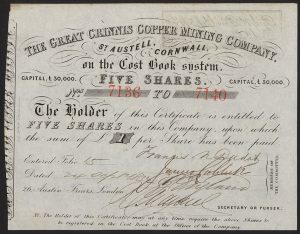 THE GREAT CRINNIS COPPER MINING COMPANY.
ST AUSTELL, CORNWALL,
on the Cost Book system.
CAPITAL, £30,000. FIVE SHARES. CAPITAL, £30,000.
Nos 7136 TO 7140
The Holder of this Certificate is entitled to
FIVE SHARES in this Company, upon which
the sum of £1 per Share has been paid
Francis
Entered Folio 15
Dated 24
26 Austin Friars, London
MEMBERS OF THE COMMITTEE.
SECRETARY OR PURSER.
N.B. The Holder of this Certificate may at any time require the above Shares to
be registered on the Cost Book at the Office of the Company.